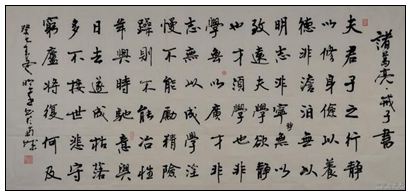 諸葛亮戒子書
夫君子之行靜
以修身儉以養
德非澹泊無以
明志非寧靜無以
致遠夫學欲靜
也才須學也非
學無以廣才非
志無以成學淫
慢不能勵精險
躁則不能冶性
年與時馳意與
日去遂成枯落
多不接世悲守
窮廬將復何及